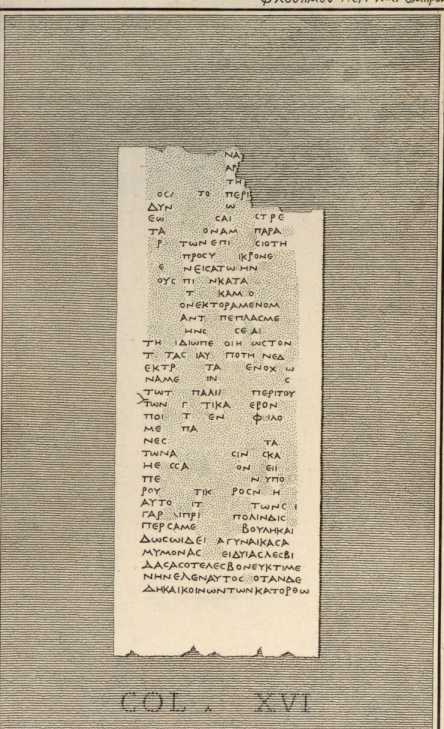 ΝΑ
ΑΡ
ΤΗ
ΟϹ ΤΟ ΠΕΡΙ
ΔΥΝ Ω
ΕΩ ϹΑΙ ϹΤΡΕ
ΤΑ ΟΝΑΜ ΠΑΡΑ
Ρ ΤΩΝΕΠΙ ϹΙΟΤΗ
ΠΡΟϹΥ ΙΚΡΟΝΕ
Ε ΝΕΙϹΑΤΩΗΝ
ΟΥϹ ΠΙ ΝΚΑΤΑ
Τ ΚΑΜ Ο
ΟΝΕΚΤΟΡΑΜΕΝΟΜ
ΑΝΤ ΠΕΠΛΑϹΜΕ
ΗΝϹ ϹΕ ΑΙ
ΤΗ ΙΔΙΩΠΕ ΟΙΗ ΩϹΤΟΝ
Τ ΤΑϹ ΙΑΥ ΠΟΤΗ ΝΕΔ
ΕΚΤΡ ΤΑ ΕΝΟΧ Ω
ΝΑΜΕ ΙΝ Ϲ
ΤΩΤ ΠΑΛΙ ΠΕΡΙΤΟΥ
ΤΩΝ Γ ΤΙΚΑ ΕΡΟΝ
ΠΟΙ Τ ΕΝ ΦΙΛΟ
ΜΕ ΠΑ
ΝΕϹ ΤΑ
ΤΩΝΑ ϹΙΝ ϹΚΑ
ΗΕ ϹϹΑ ΟΝ ΕΙΙ
ΠΕ Ν ΥΠΟ
ΡΟΥ ΤΙΚ ΡΟϹΝ Η
ΑΥΤΟ ΙΤ ΤΩΝϹ Ι
ΓΑΡ ΙΠΡΙ ΠΟΛΙΝΔΙϹ
ΠΕΡϹΑΜΕ ΒΟΥΛΗΚΑΙ
ΔΩϹΩΙΔΕΙ ΑΓΥΝΑΙΚΑϹΑ
ΜΥΜΟΝΑϹ ΕΙΔΥΙΑϹΛΕϹΒΙ
ΔΑϹΑϹΟΤΕΛΕϹΒΟΝΕΥΚΤΙΜΕ
ΝΗΝΕΛΕΝΑΥΤΟϹ ΟΤΑΝΔΕ
ΔΗΚΑΙΚΟΙΝΩΝΤΩΝΚΑΤΟΡΘΩ
COL. XVI